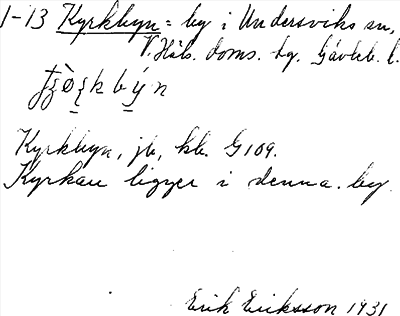 1-13 Kyrkbyn = by i Undersviks sn,
V. Häls. doms. hg. Gävleb. l.
k b ý n
Kyrkbyn, jb, kb. G109.
Kyrkan ligger i denna by
Erik Eriksson 1931